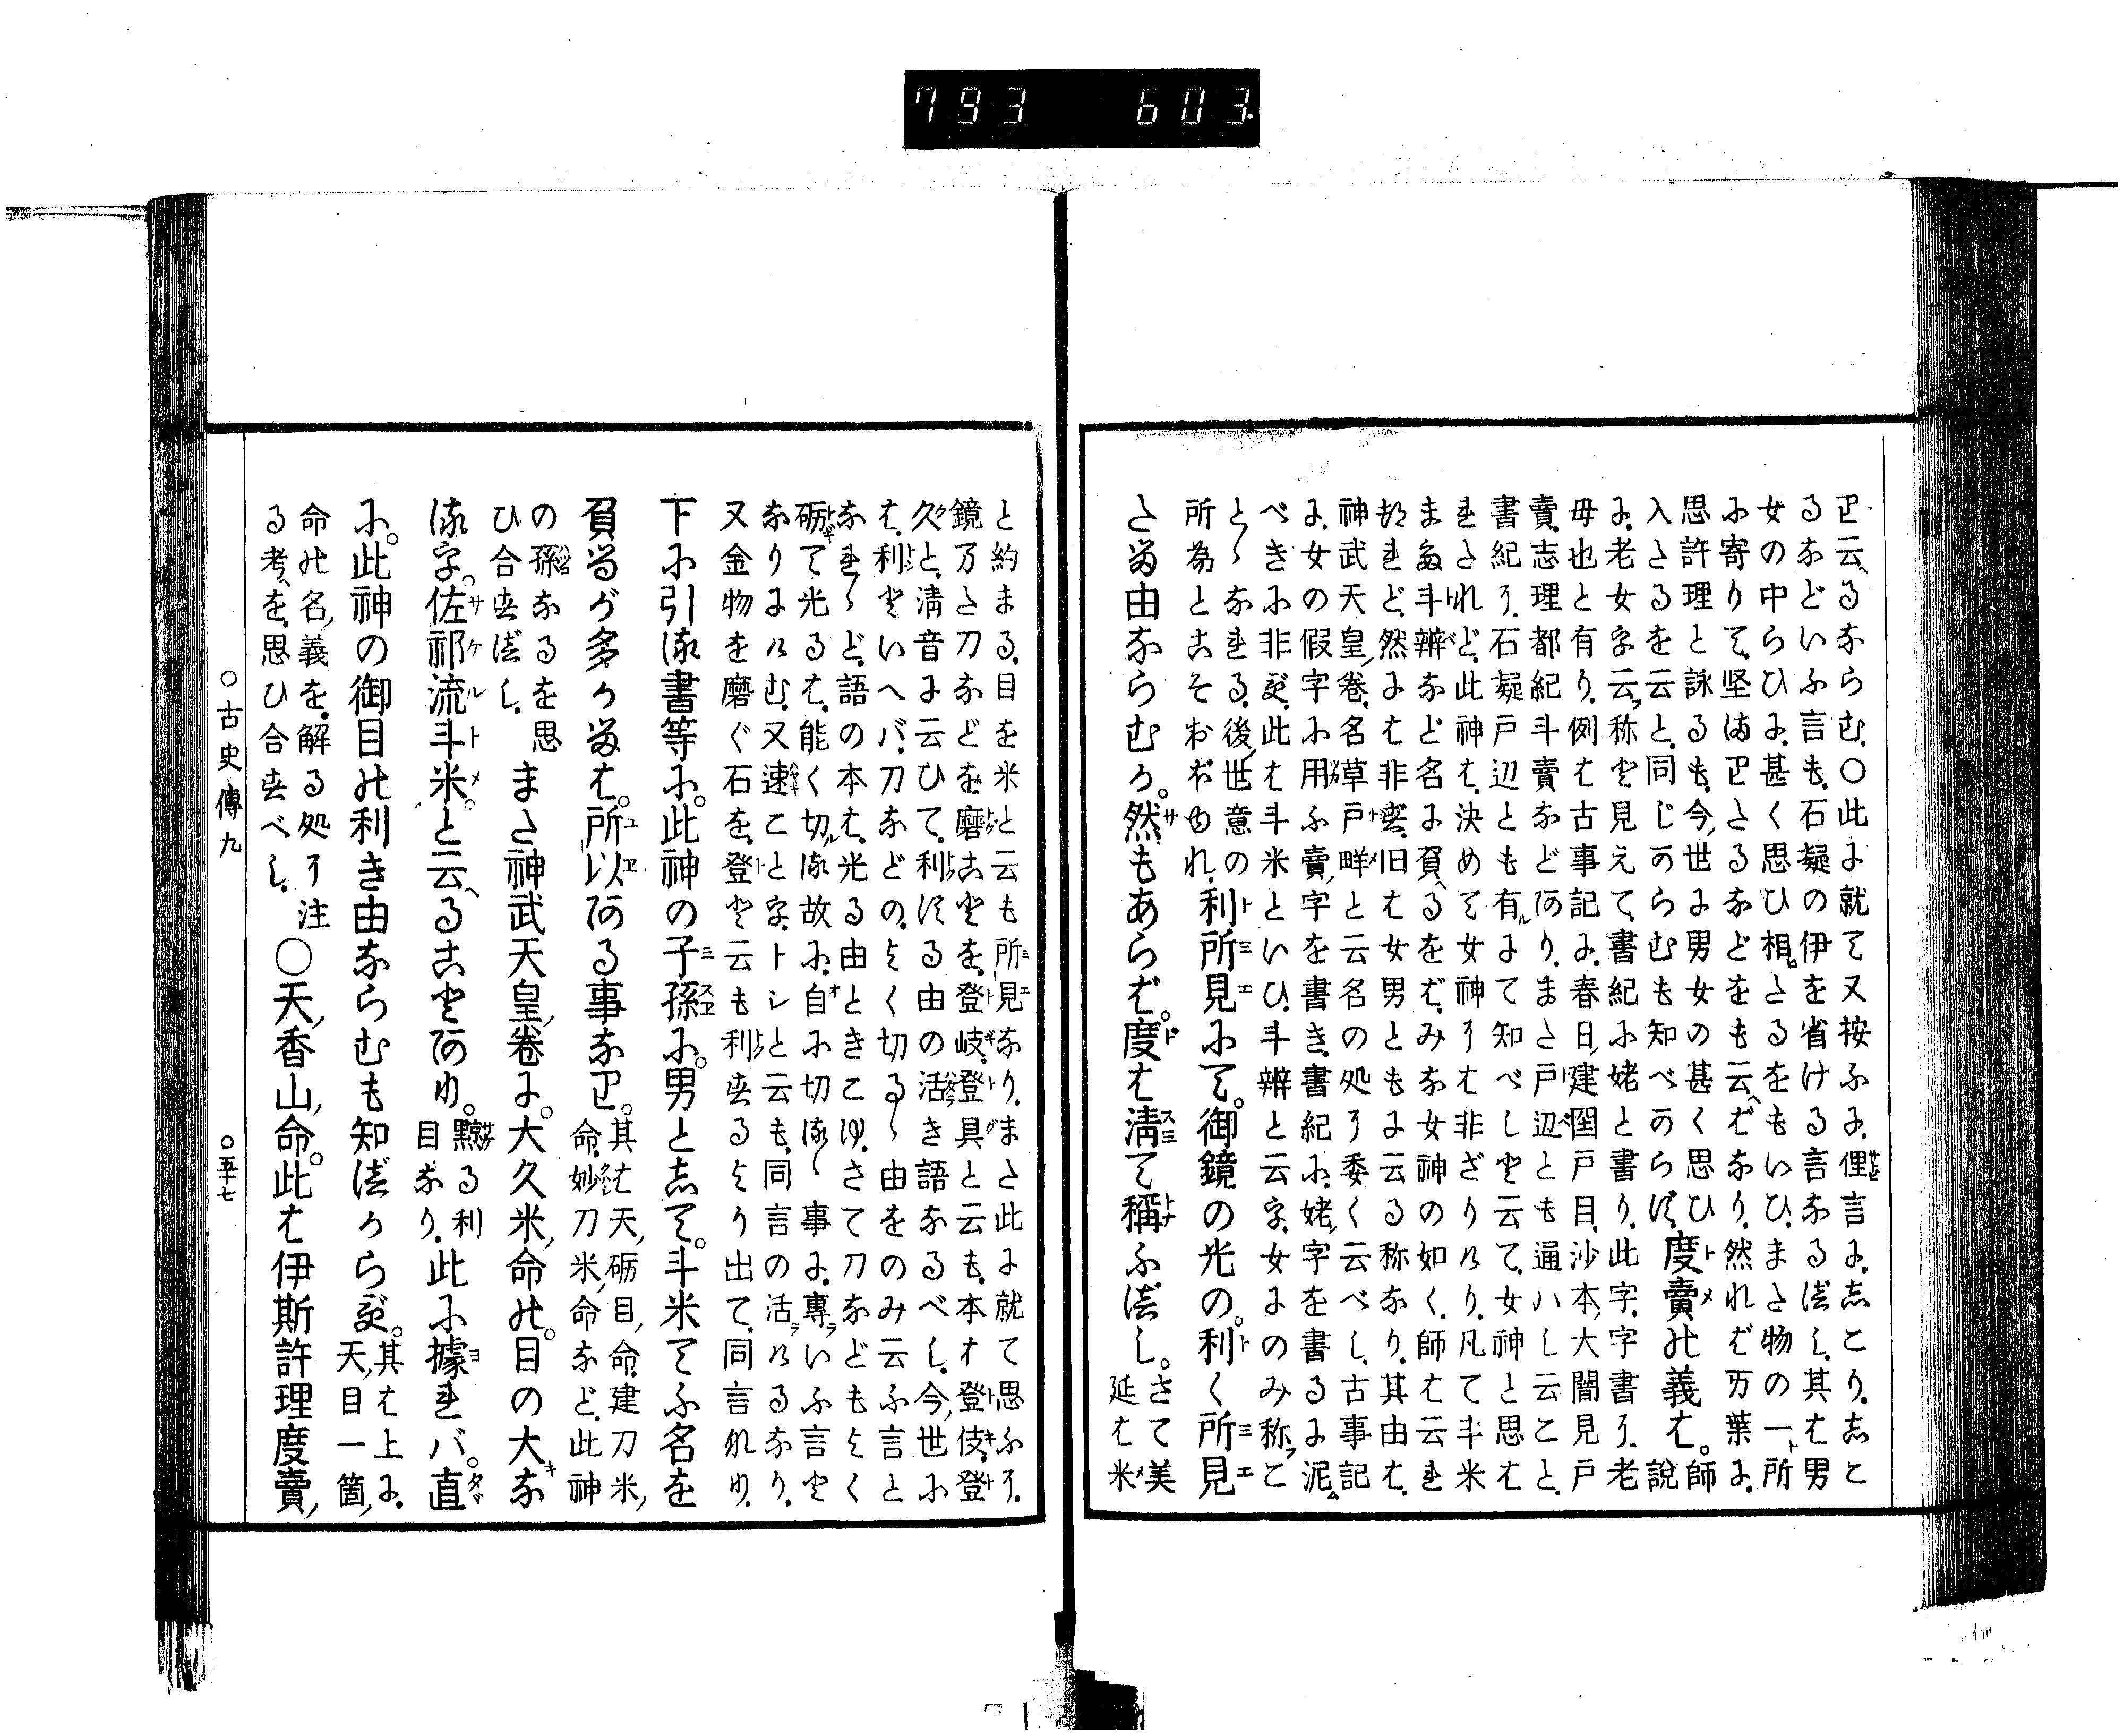 793 603.
り云るならむ。○此に就て又按ふに、俚言に、しこり、しこ
るなどいふ言も、石凝の伊を省ける言なるべし、其は男
女の中らひに、甚く思ひ相たるをもいひ、また物の一所
に寄りて、堅まりたるなどをも云へばなり、然れば万葉に、
思許理と詠るも、今世に男女の甚く思ひ
入たるを云と、同じからむも知べからず、度賣の義は。師說
に、老女字云、称と見えて、書紀に姥と書り、此字、字書に、老
母也と有り、例は古事記に、春日建国戸目、沙本大闇見戸
賣、志理都紀斗賣などあり、また戸辺とも通ハし云こと、
書紀に、石凝戸辺とも有にて知べしと云て、女神と思は
れたれど、此神は、決めて女神には非ざりけり、凡て斗米
また斗辨など名に負るをば、みな女神の如く、師は云れ
つれど、然には非ず、旧は女男ともに云る称なり、其由は、
神武天皇卷、名草戸畔と云名の処に委く云べし、古事記
に、女の假字に用ふ賣字を書き、書紀に、姥字を書るに泥
べきに非ず、此は斗米といひ、斗辨と云字、女にのみ称こ
とゝなれる、後世意の
所為とこそおぼゆれ、利所見にて。御鏡の光の。利く所見
たる由ならむか。然もあらば。度は清て稱ふべし。さて美延は米
と約まる、目を米と云も所見なり、また此に就て思ふに、
鏡乃た刀などを磨ことを、登岐、登具と云も、本才登伎、登
久と、清音に云ひて、利くする由の活き語なるべし、今世に
は、利といへバ、刀などの、よく切るゝ由をのみ云ふ言と
なれゝど、語の本は、光る由ときこゆ、さて刀などもよく
砺て光るは、能く切る故に、自に切るゝ事に、專いふ言と
なりにけむ、又速こと字、トシと云も、同言の活けるなり、
又金物を磨ぐ石を、登と云も利するより出て、同言なり、
下に引る書等に。此神の子孫に。男として。斗米てふ名を
負るが多かるは。所以ある事なり。其は天砺目命、建刀米命、妙刀米命など、此神
の孫なるを思ひ合すべし、また神武天皇卷に。大久米命の。目の大な
る字。佐祁流斗米と云ることあり。黥る利目なり、此に據れバ。直
に。此神の御目の利き由ならむも知べからず。其は上に、天目一箇
命の名義を、解る処に注る考を、思ひ合すべし、○天香山命。此は伊斯許理度賣
○古史傳九 ○五十七